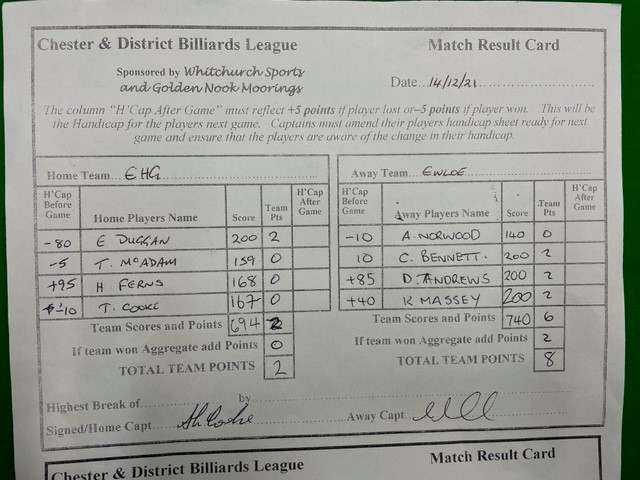 Chester & District Billiards League Match Result Card
Sponsored by Whitchurch Sports
and Golden Nook Moorings Date 14/12/21
The column "H'Cap After Game" must reflect +5 points if player lost or –5 points if player won. This will be
the Handicap for the players next game. Captains must amend their players handicap sheet ready for next
game and ensure that the players are aware of the change in their handicap.
Home Team... EHG
H'Cap Before Game Home Players Name Score Team Pts H'Cap After Game
-80 E DUGGAN 200 2
-5 T. McADAM 159 0
+95 H FERNS 168 0
-10 T. COOKE 167 0
Team Scores and Points 694 2
If team won Aggregate add Points 0
TOTAL TEAM POINTS 2
Away Team... EWLOE
H'Cap Before Game Away Players Name Score Team Pts H'Cap After Game
-10 A. NORWOOD 140 0
10 C. BENNETT. 200 2
+85 D. ANDREWS 200 2
+40 K MASSEY 200 2
Team Scores and Points 740 6
If team won Aggregate add Points 2
TOTAL TEAM POINTS 8
Highest Break of by
Signed/Home Capt Away Capt
Chester & District Billiards League Match Result Card